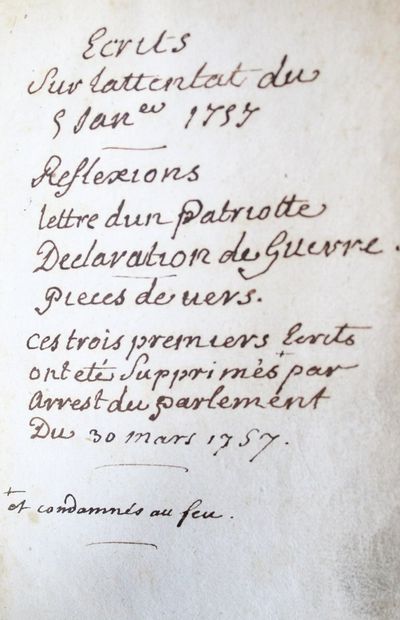 Ecrits
Sur lattentat du
5 Jan.er 1757
Reflexions
lettre dun Patriotte
Declaration de Guerre.
Pieces de vers.
ces trois premiers Ecrits
ont eté Supprimés + par
Arrest du parlement
Du 30 mars 1757.
+ et condamnés au feu.